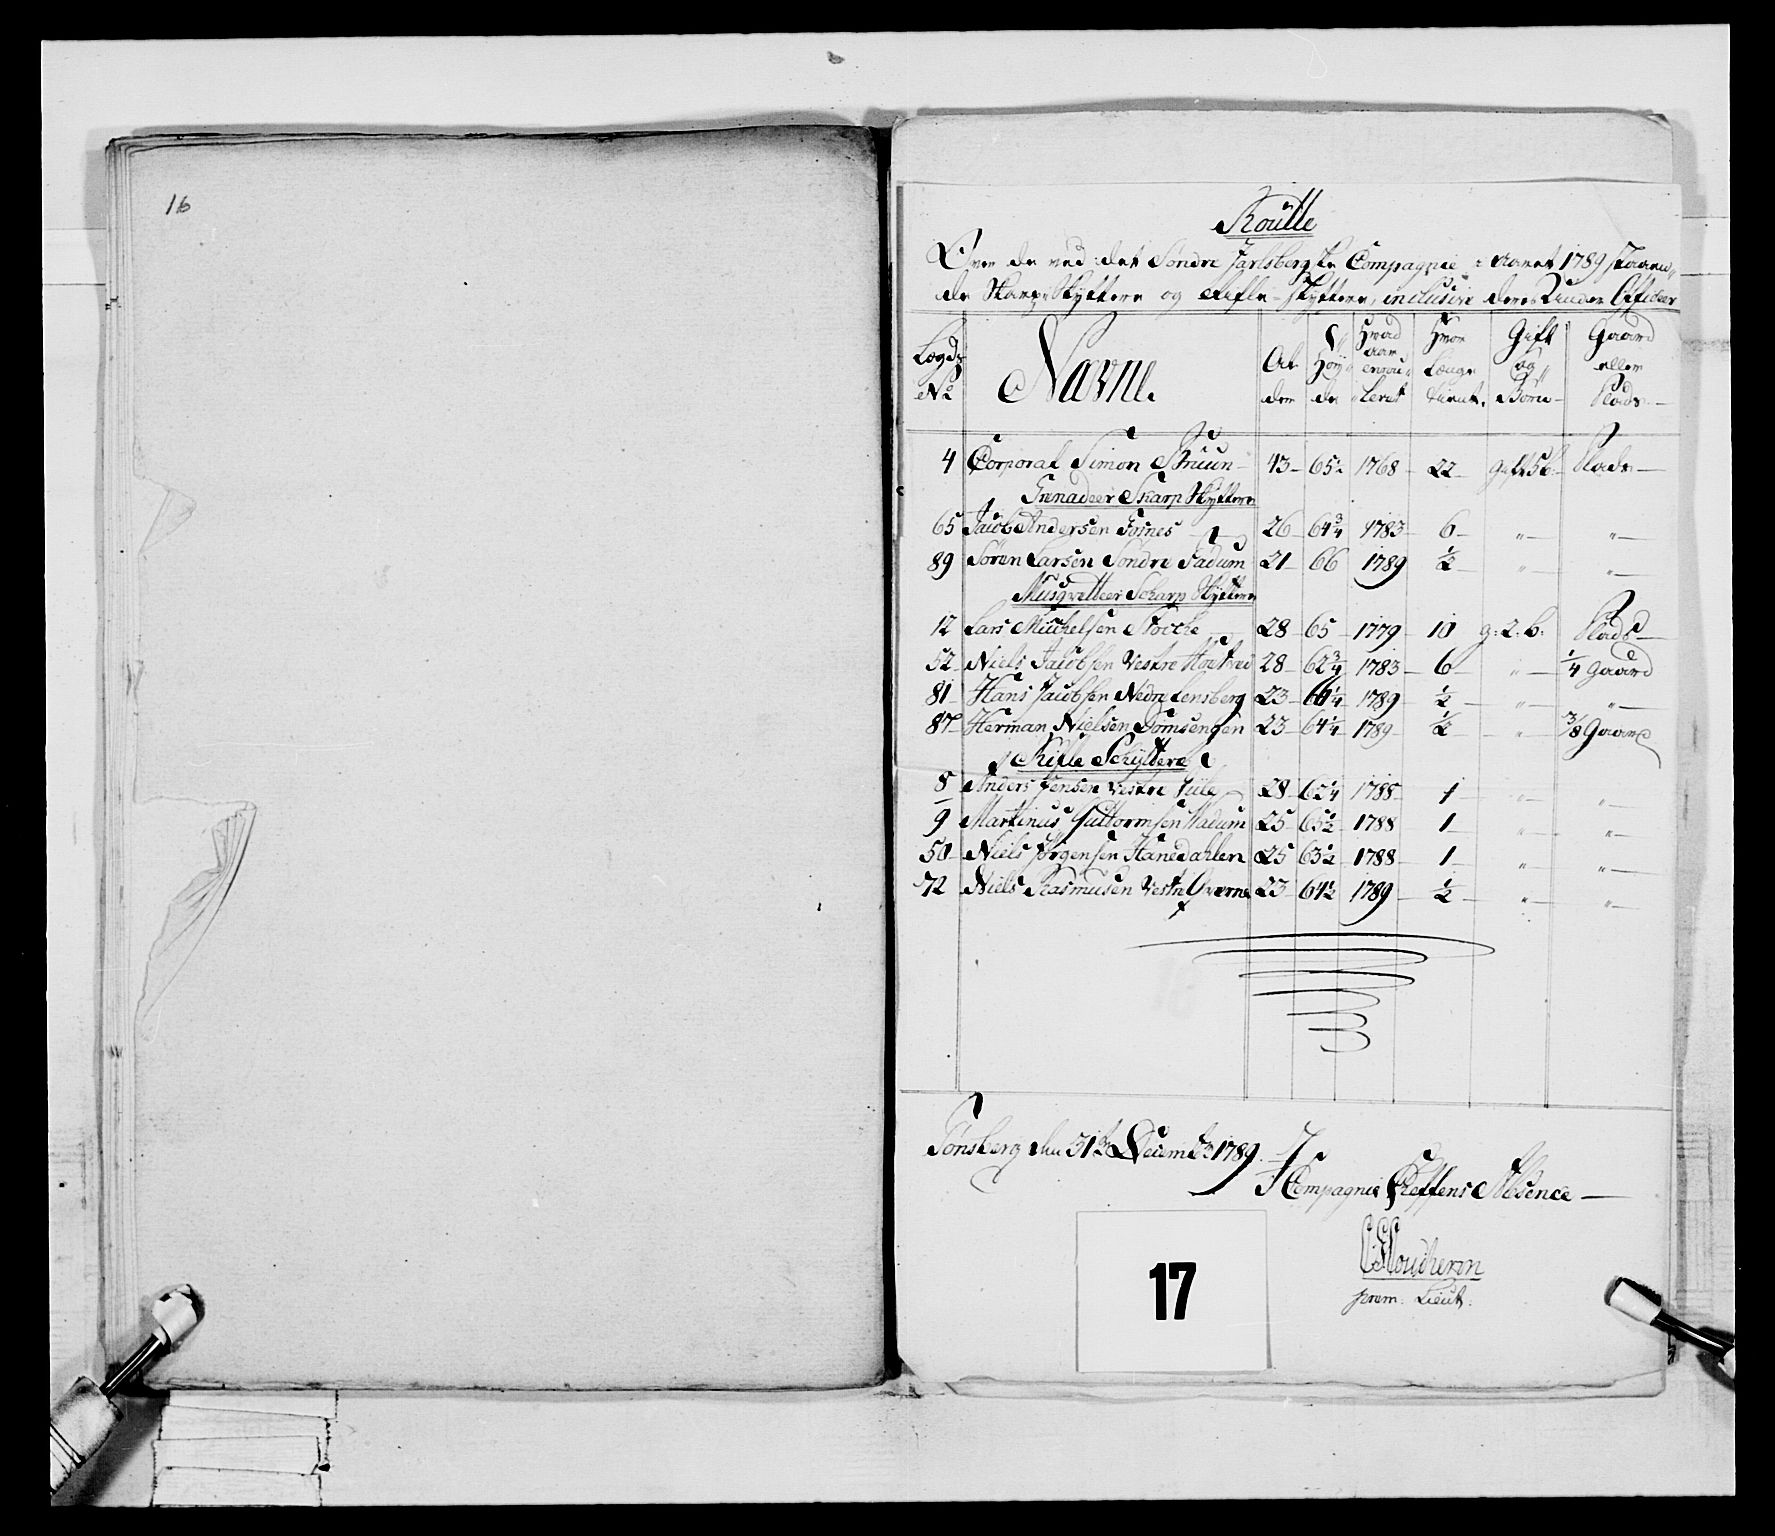 16
Roulle
Over de ved det Søndre Jarlsbergske Compagnie i Aaret 1789 staaen„
de Skarp Skyttere og Rifle-Skyttere, inclusive deres Under Officeer
Lægds No | Navne | Al der | Høy„ de | Hvad Aar enrou„ leret | Hvor Længe tient. | Gift og Børn | Gaard eller Plads
4 Corporal Simon Struun 43 65½ 1768 22 gift 5 b. Plads
Grenadeer Skarp Skyttere
65 Jacob Andersen Fosnes 26 64¾ 1783 6 „ „
89 Søren Larsen Søndre Sadum 21 66 1789 ½ „ „
Musqvetteer Scharp Skyttere
12 Lars Michelsen Stocke 28 65 1779 10 g: 2. b. Plads
52 Niels Jacobsen Vestre 28 62¾ 1783 6 „ ¼ gaard
81 Hans Jacobsen Nedre Lensberg 23 1789 ½ „ „
87 Herman Nielsen Domsengen 23 64¼ 1789 ½ „ 3/8 Gaard
Rifle Schyttere
8 Anders Jensen Vestre 28 62¼ 1788 1 „ „
9 Martinus Guttormsen 25 65½ 1788 1 „ „
50 Niels Jørgensen Hanedahlen 25 63½ 1788 1 „ „
72 Niels Rasmusen Vestre 23 64½ 1789 ½ „ „
Tønsberg den 31te Decemb: 1789.
I Compagnie Cheffens Absence
prem: Lieut:
17